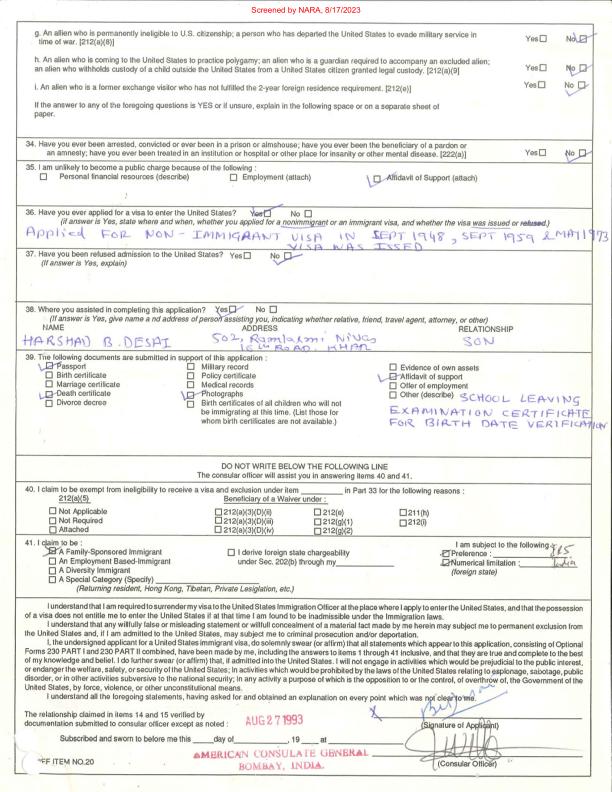 Screened by NARA, 8/17/2023
g. An alien who is permanently ineligible to U.S. citizenship; a person who has departed the United States to evade military service in
time of war. [212(a)(8)] Yes No
h. An alien who is coming to the United States to practice polygamy; an alien who is a guardian required to accompany an excluded alien;
an alien who withholds custody of a child outside the United States from a United States citizen granted legal custody. [212(a)(9] Yes No
i. An alien who is a former exchange visitor who has not fulfilled the 2-year foreign residence requirement. [212(e)] Yes No
If the answer to any of the foregoing questions is YES or if unsure, explain in the following space or on a separate sheet of
paper.
34. Have you ever been arrested, convicted or ever been in a prison or almshouse; have you ever been the beneficiary of a pardon or
an amnesty; have you ever been treated in an institution or hospital or other place for insanity or other mental disease. [222(a)] Yes No
35. I am unlikely to become a public charge because of the following :
Personal financial resources (describe) Employment (attach) Affidavit of Support (attach)
36. Have you ever applied for a visa to enter the United States? Yes No
(if answer is Yes, state where and when, whether you applied for a nonimmigrant or an immigrant visa, and whether the visa was issued or refused.)
Applied FOR NON-IMMIGRANT VISA IN SEPT 1948, SEPT 1959 & MAY 1973
VISA WAS ISSED
37. Have you been refused admission to the United States? Yes No
(If answer is Yes, explain)
38. Where you assisted in completing this application? Yes No
(If answer is Yes, give name a nd address of person assisting you, indicating whether relative, friend, travel agent, attorney, or other)
NAME ADDRESS RELATIONSHIP
HARSHAD B. DESAI 502, Ramlaxmi Nivas SON
16th ROAD, KHAR
39. The following documents are submitted in support of this application :
Passport Military record Evidence of own assets
Birth certificate Policy certificate Affidavit of support
Marriage certificate Medical records Offer of employment
Death certificate Photographs Other (describe) SCHOOL LEAVING
Divorce decree Birth certificates of all children who will not EXAMINATION CERTIFICATE
be immigrating at this time. (List those for FOR BIRTH DATE VERIFICATION
whom birth certificates are not available.)
DO NOT WRITE BELOW THE FOLLOWING LINE
The consular officer will assist you in answering items 40 and 41.
40. I claim to be exempt from ineligibility to receive a visa and exclusion under item ______ in Part 33 for the following reasons :
212(a)(5) Beneficiary of a Waiver under :
Not Applicable 212(a)(3)(D)(ii) 212(e) 211(h)
Not Required 212(a)(3)(D)(iii) 212(g)(1) 212(i)
Attached 212(a)(3)(D)(iv) 212(g)(2)
41. I claim to be : I am subject to the following :
A Family-Sponsored Immigrant I derive foreign state chargeability Preference :
An Employment Based-Immigrant under Sec. 202(b) through my Numerical limitation : India
A Diversity Immigrant (foreign state)
A Special Category (Specify)
(Returning resident, Hong Kong, Tibetan, Private Lesiglation, etc.)
I understand that I am required to surrender my visa to the United States Immigration Officer at the place where I apply to enter the United States, and that the possession
of a visa does not entitle me to enter the United States if at that time I am found to be inadmissible under the Immigration laws.
I understand that any willfully false or misleading statement or willful concealment of a material fact made by me herein may subject me to permanent exclusion from
the United States and, if I am admitted to the United States, may subject me to criminal prosecution and/or deportation.
I, the undersigned applicant for a United States immigrant visa, do solemnly swear (or affirm) that all statements which appear to this application, consisting of Optional
Forms 230 PART I and 230 PART II combined, have been made by me, including the answers to items 1 through 41 inclusive, and that they are true and complete to the best
of my knowledge and belief. I do further swear (or affirm) that, if admitted into the United States. I will not engage in activities which would be prejudicial to the public interest,
or endanger the welfare, safety, or security of the United States; in activities which would be prohibited by the laws of the United States relating to espionage, sabotage, public
disorder, or in other activities subversive to the national security; in any activity a purpose of which is the opposition to or the control, of overthrow of, the Government of the
United States, by force, violence, or other unconstitutional means.
I understand all the foregoing statements, having asked for and obtained an explanation on every point which was not clear to me.
The relationship claimed in items 14 and 15 verified by
documentation submitted to consular officer except as noted : AUG 27 1993 X (Signature of Applicant)
Subscribed and sworn to before me this ____day of________, 19 ___ at
AMERICAN CONSULATE GENERAL
BOMBAY, INDIA. (Consular Officer)
FF ITEM NO.20